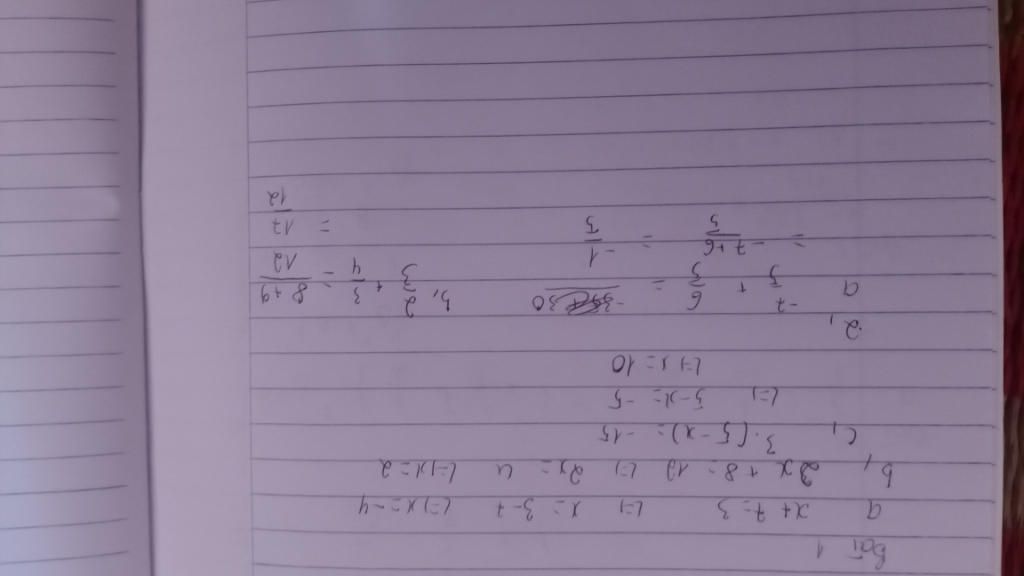 Bài 1
a x + 7 = 3 <=> x = 3 - 7 <=> x = -4
b, 2x + 8 = 12 <=> 2x = 4 <=> x = 2
c, 3.(5 - x) = -15
<=> 5 - x = -5
<=> x = 10
2,
a -7/5 + 6/5 =
= -7+6/5 = -1/5
b, 2/3 + 3/4 = 8+9/12
= 17/12